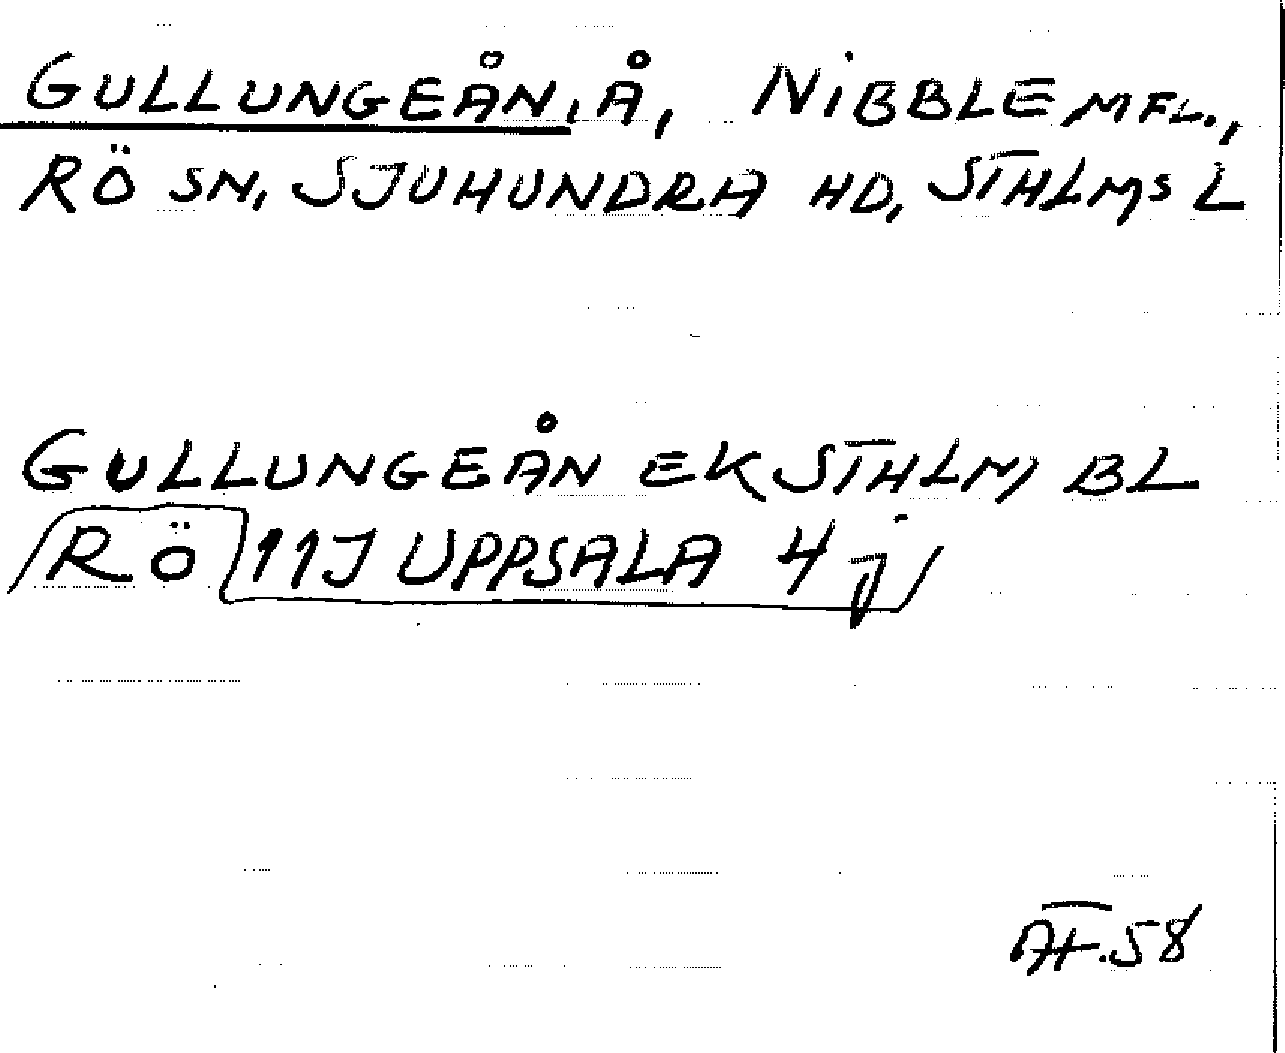 GULLUNGEÅN, Å, NIBBLE MFL.,
RÖ SN, SJUHUNDRA HD, STHLMS L
GULLUNGEÅN EK STHLM BL
RÖ 11J UPPSALA 4 j
AT.58